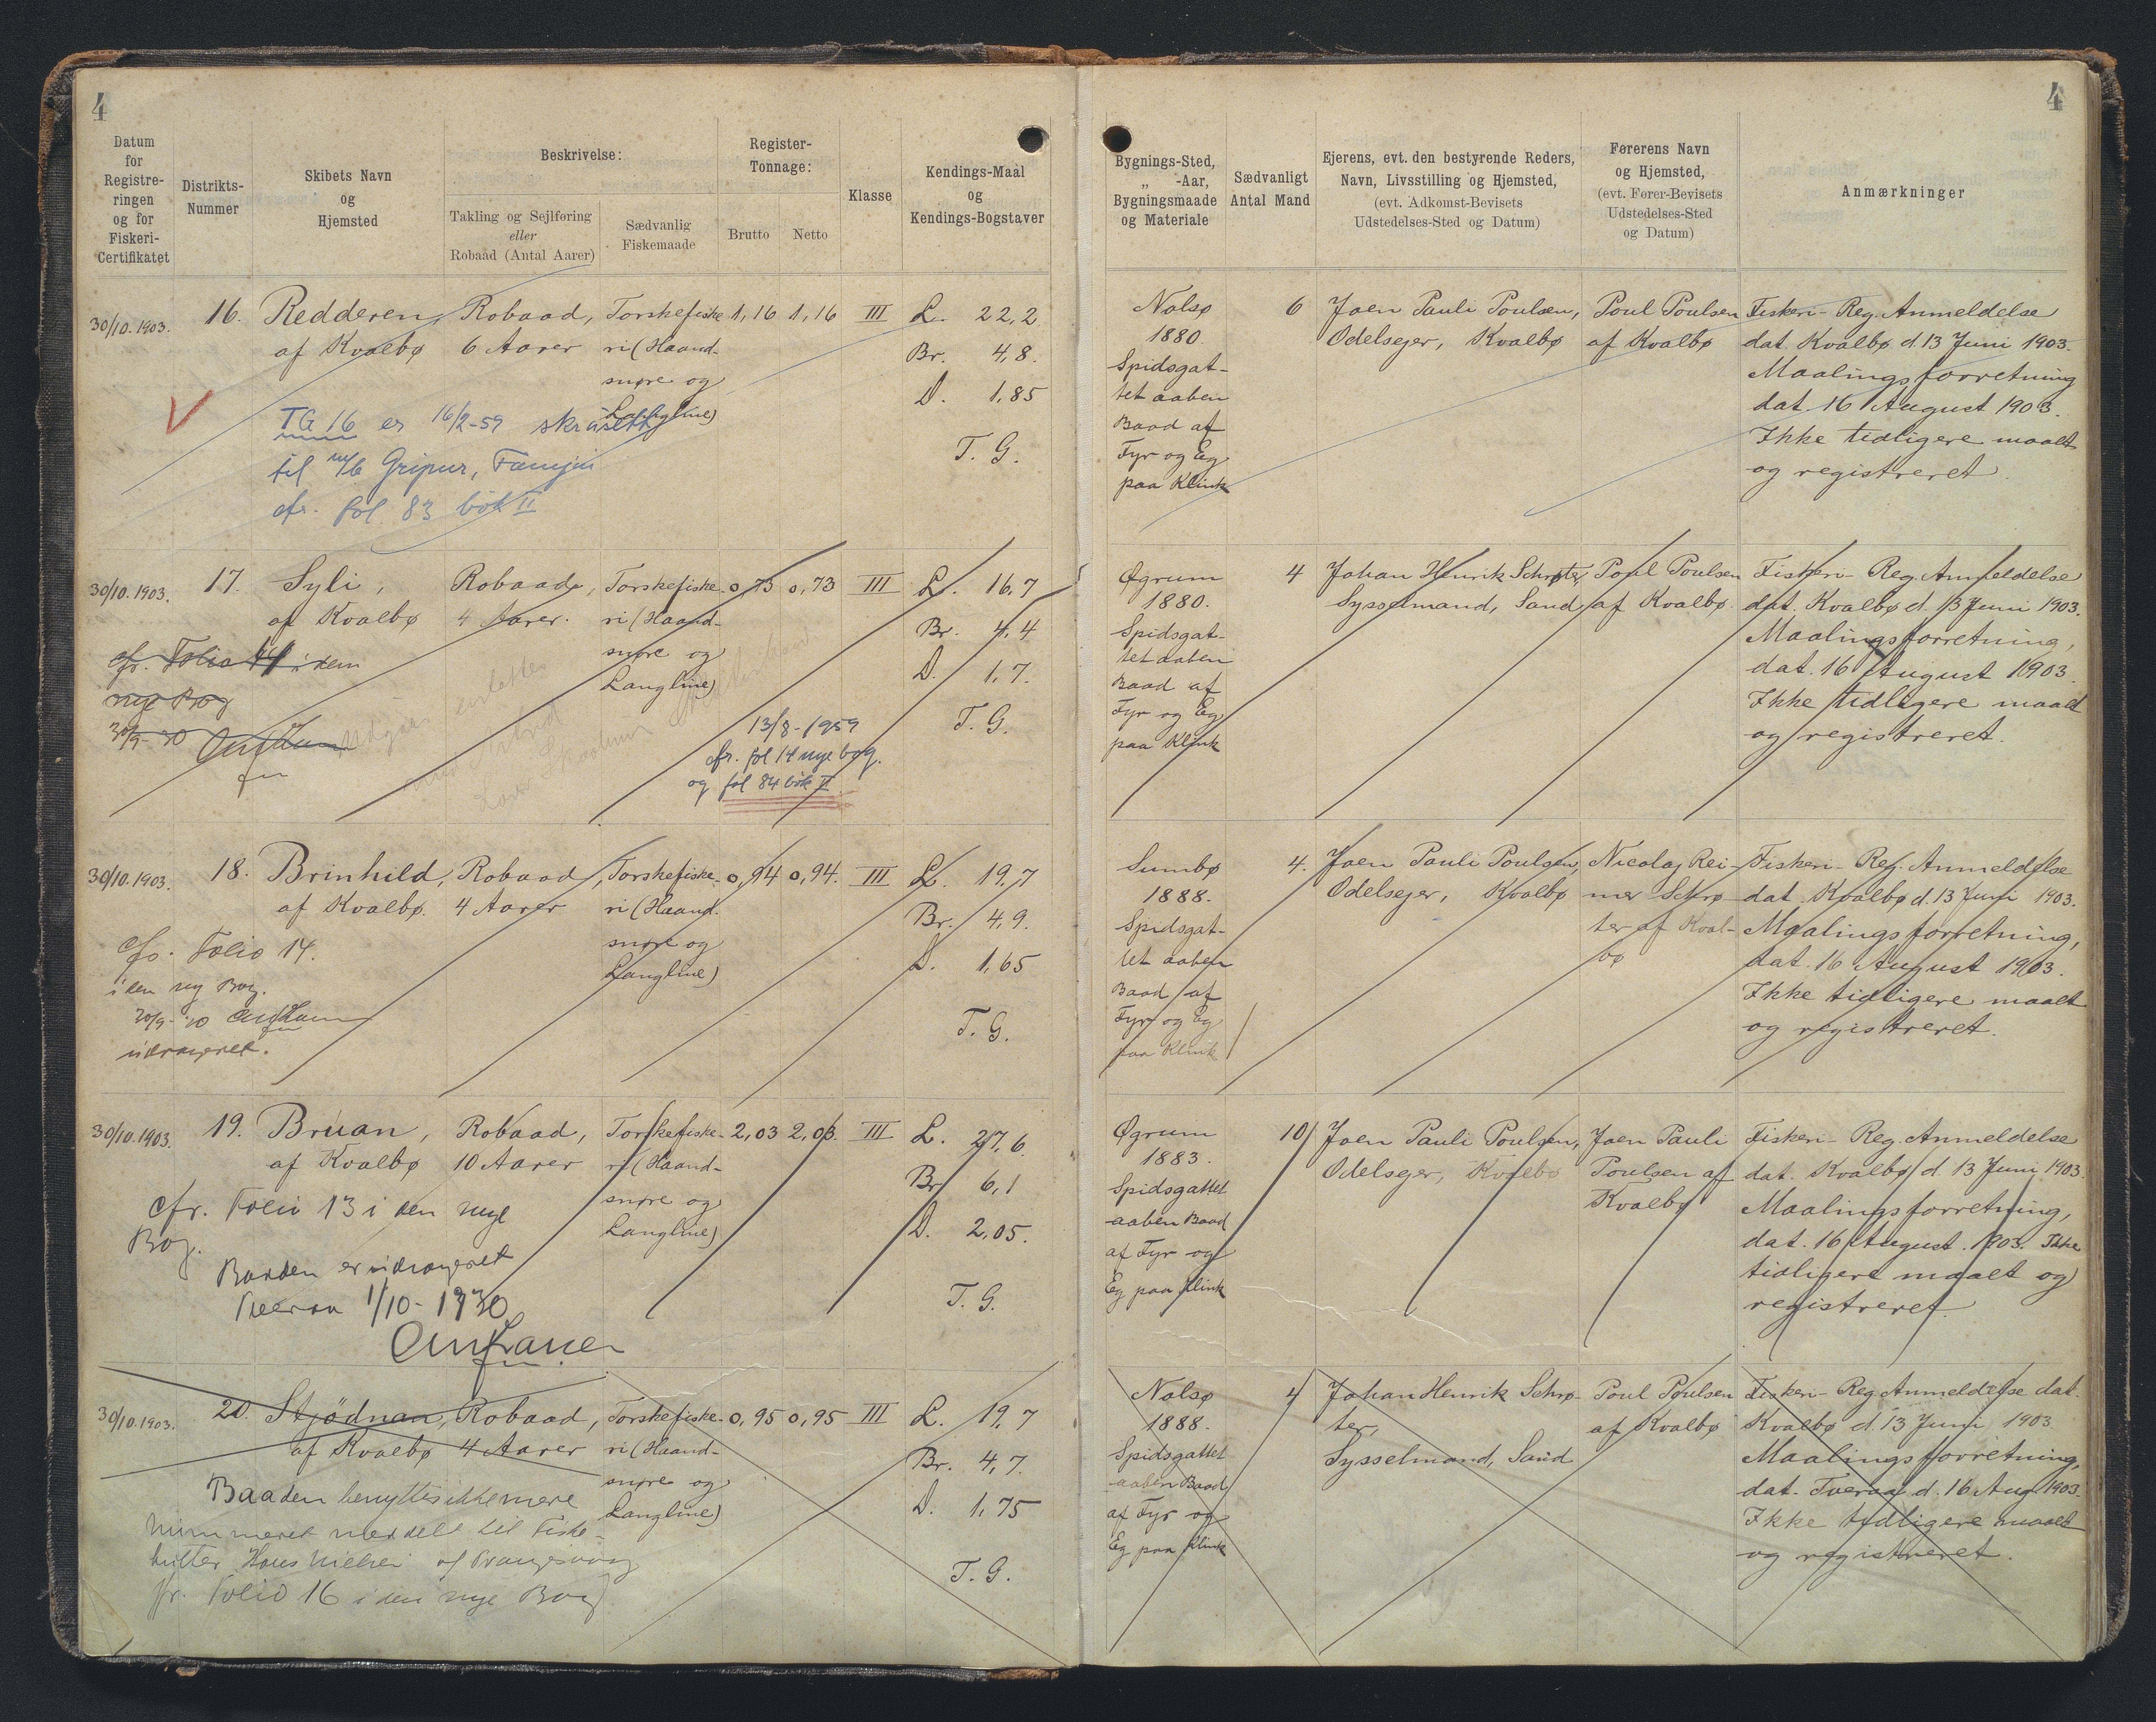 4
4
Datum
for
Registre-
ringen
og for
Fiskeri-
Certifikatet
Distrikts-
Nummer
Skibets Navn
og
Hjemsted
Beskrivelse:
Takling og Sejlføring
eller
Robaad (Antal Aarer)
Sædvanlig
Fiskemaade
Register-
Tonnage:
Brutto
Netto
Klasse
Kendings-Maal
og
Kendings-Bogstaver
Bygnings-Sted,
„ -Aar,
Bygningsmaade
og Materiale
Sædvanligt
Antal Mand
Ejerens, evt. den bestyrende Reders,
Navn, Livsstilling og Hjemsted,
(evt. Adkomst-Bevisets
Udstedelses-Sted og Datum)
Førerens Navn
og Hjemsted,
(evt. Fører-Bevisets
Udstedelses-Sted
og Datum)
Anmærkninger
30/10. 1903.
16.
Redderen,
af Kvalbø
Robaad,
6 Aarer
Torskefiske-
ri (Haand-
snøre og
Langline)
1,16
1,16
III
L. 22,2
Br. 4,8.
D. 1,85
T. G.
TG 16 er 16/2-59 skrásett
til m/b Gripur, Famjin
cfr. fol 83 bók II
Nolsø
1880
Spidsgat-
tet aaben
Baad af
Fyr og Eg
paa Klink
6
Joen Pauli Poulsen,
Odelsejer, Kvalbø
Poul Poulsen
af Kvalbø
Fiskeri-Reg. Anmeldelse
dat. Kvalbø d. 13 Juni 1903.
Maalingsforretning
dat. 16 August 1903.
Ikke tidligere maalt
og registreret.
30/10. 1903.
17.
Syli,
af Kvalbø
Robaad,
4 Aarer.
Torskefiske-
ri (Haand-
snøre og
Langline)
0,73
0,73
III
L. 16,7
Br. 4,4
D. 1,7.
T. G.
cfr. Folio 14 i den
nye Bog
30/9-30
13/8-1959
cfr. fol 14 nye bog.
og fol 84 bók II
Øgrum
1880.
Spidsgat-
tet aaben
Baad af
Fyr og Eg
paa Klink
4
Johan Henrik Schrøter,
Sysselmand, Sand
Poul Poulsen
af Kvalbø.
Fiskeri-Reg. Anmeldelse
dat. Kvalbø d. 13 Juni 1903.
Maalingsforretning,
dat. 16 August 1903.
Ikke tidligere maalt
og registreret.
30/10. 1903.
18.
Brinhild,
af Kvalbø.
Robaad,
4 Aarer
Torskefiske-
ri (Haand-
snøre og
Langline)
0,94
0,94.
III
L. 19,7
Br. 4,9.
D. 1,65
T. G.
cfr. Folio 14.
i den ny Bog.
30/9-30
udrangeret.
Sumbø
1888.
Spidsgat-
tet aaben
Baad af
Fyr og Eg
paa Klink
4.
Joen Pauli Poulsen,
Odelsejer, Kvalbø
Nicolaj Rei-
mer Schrø-
ter af Kval-
bø
Fiskeri-Reg. Anmeldelse
dat. Kvalbø d. 13 Juni 1903.
Maalingsforretning,
dat. 16 August 1903.
Ikke tidligere maalt
og registreret.
30/10. 1903.
19.
Brúan,
af Kvalbø
Robaad,
10 Aarer
Torskefiske-
ri (Haand-
snøre og
Langline)
2,03
2,03.
III
L. 27,6.
Br. 6,1
D. 2,05.
T. G.
cfr. Folio 13 i den nye
Bog.
Baaden er udrangeret
Tveraa 1/10-1930
Øgrum
1883.
Spidsgattet
aaben Baad
af Fyr og
Eg paa Klink
10
Joen Pauli Poulsen,
Odelsejer, Kvalbø
Joen Pauli
Poulsen af
Kvalbø
Fiskeri-Reg. Anmeldelse
dat. Kvalbø d. 13 Juni 1903.
Maalingsforretning,
dat. 16 August. 1903. Ikke
tidligere maalt og
registreret.
30/10. 1903.
20.
Stjödnan,
af Kvalbø
Robaad,
4 Aarer
Torskefiske-
ri (Haand-
snøre og
Langline)
0,95
0,95
III
L. 19,7
Br. 4,7.
D. 1,75
T. G.
Baaden benyttes ikke mere
Nummeret meddelt til Fiske-
kutter Hans Nielsen af Vrangsvaag
fr. Folio 16 i den nye Bog
Nolsø
1888.
Spidsgattet
aaben Baad
af Fyr og
Eg paa Klink
4
Johan Henrik Schrø-
ter,
Sysselmand, Sand
Poul Poulsen
af Kvalbø
Fiskeri-Reg Anmeldelse dat.
Kvalbø d. 13 Juni 1903.
Maalingsforretning,
dat. Tveraa d. 16 Aug. 1903.
Ikke tidligere maalt
og registreret.